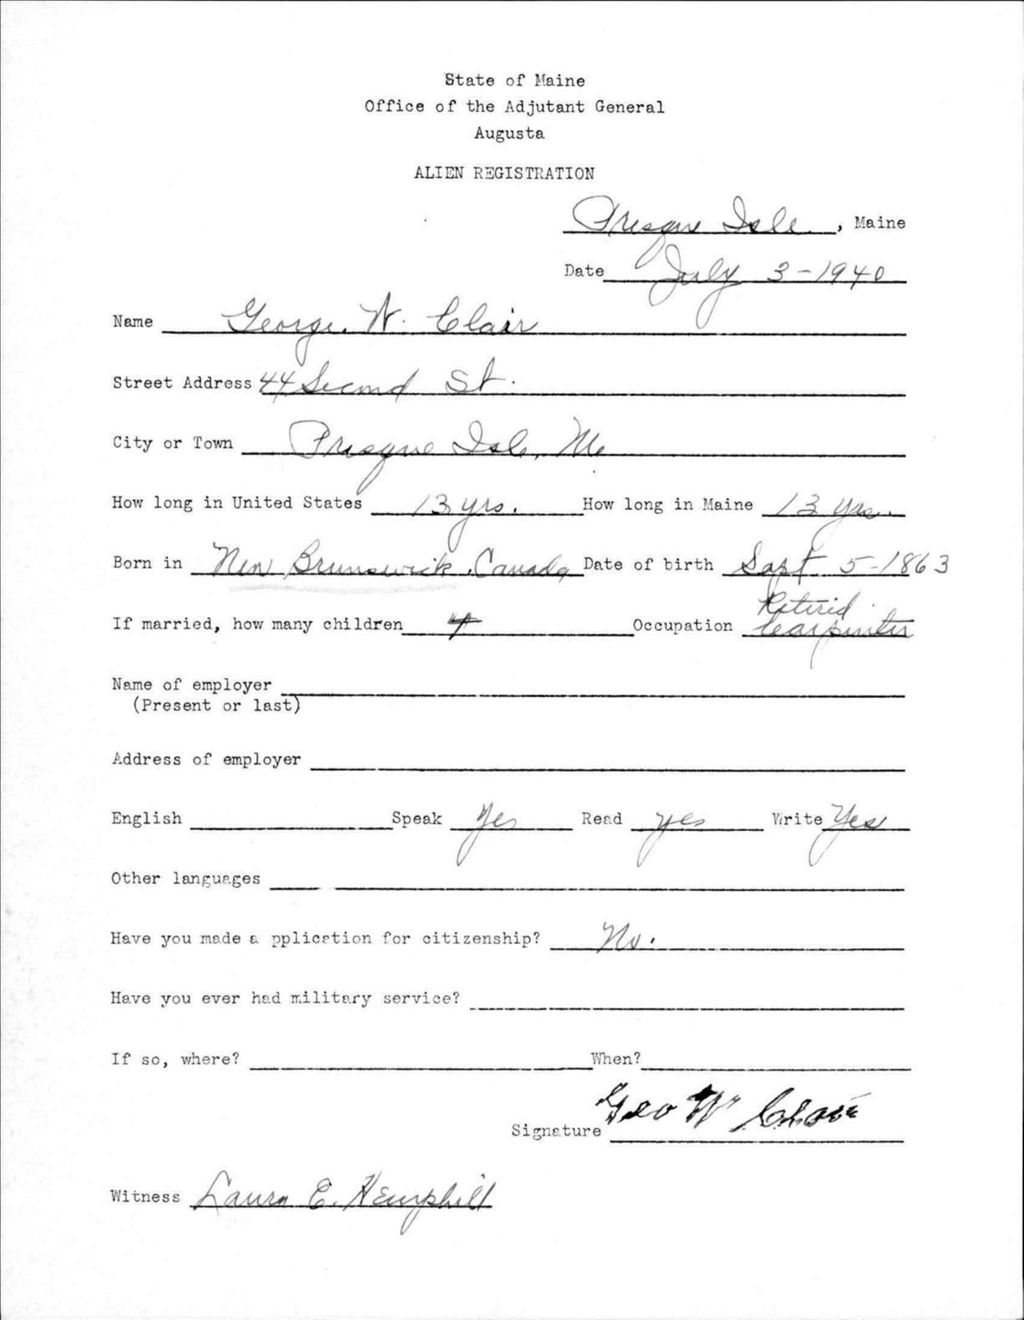 State of Maine
Office of the Adjutant General
Augusta
ALIEN REGISTRATION
Presque Isle, Maine
Date July 3-1940
Name George W. Clair
Street Address 44 Second St.
City or Town Presque Isle, Me
How long in United States 13 yrs. How long in Maine 13 yrs.
Born in New Brunswick, Canada Date of birth Sept 5-1863
Retired
If married, how many children 4 Occupation Carpenter
Name of employer
(Present or last)
Address of employer
English Speak Yes Read yes Write Yes
Other languages
Have you made a pplication for citizenship? No.
Have you ever had military service?
If so, where? When?
Signature Geo W Clair
Witness Laura E. Hemphill